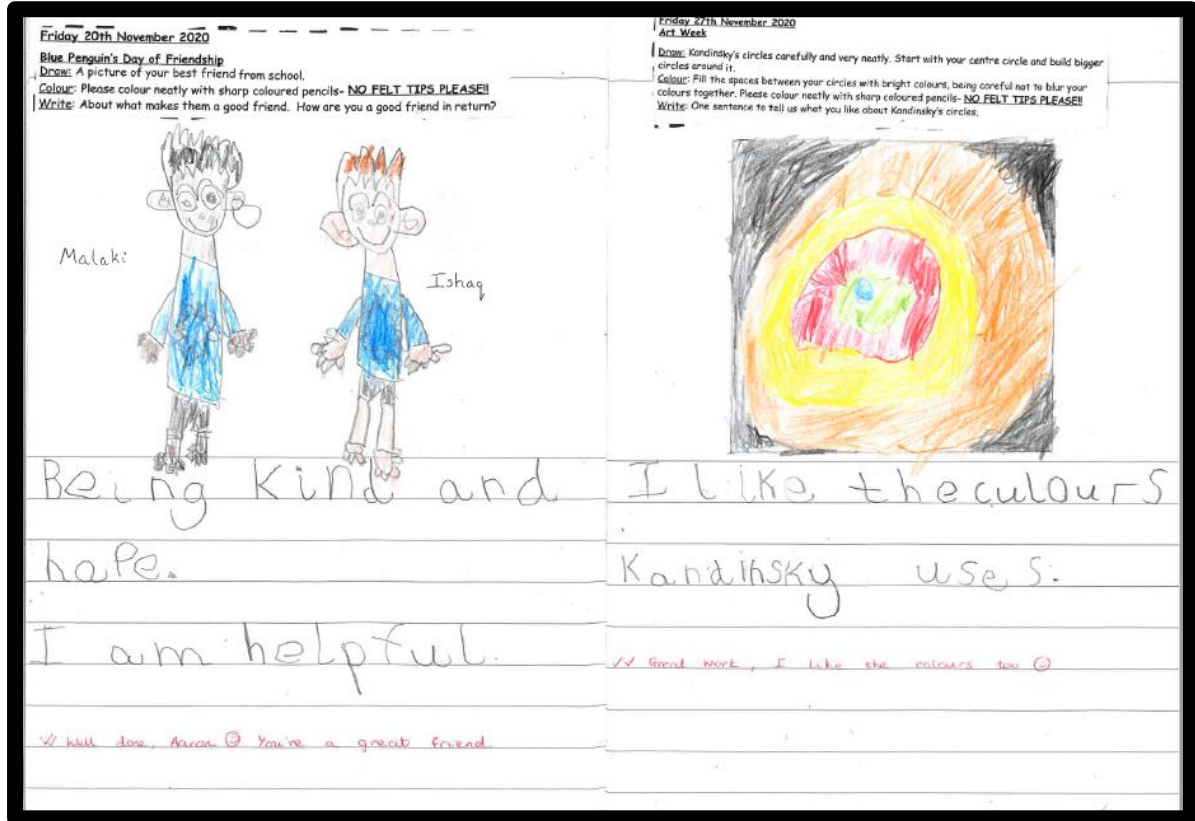 Friday 20th November 2020
Blue Penguin's Day of Friendship
Draw: A picture of your best friend from school.
Colour: Please colour neatly with sharp coloured pencils- NO FELT TIPS PLEASE!!
Write: About what makes them a good friend. How are you a good friend in return?
Malaki
Ishaq
Being kind and
hape.
I am helpful.
Well done, Aaron ☺ You're a great friend
Friday 27th November 2020
Art Week
Draw: Kandinsky's circles carefully and very neatly. Start with your centre circle and build bigger
circles around it.
Colour: Fill the spaces between your circles with bright colours, being careful not to blur your
colours together. Please colour neatly with sharp coloured pencils- NO FELT TIPS PLEASE!!
Write: One sentence to tell us what you like about Kandinsky's circles.
I like the culours
Kandinsky uses.
✓✓ Great work, I like the colours too ☺